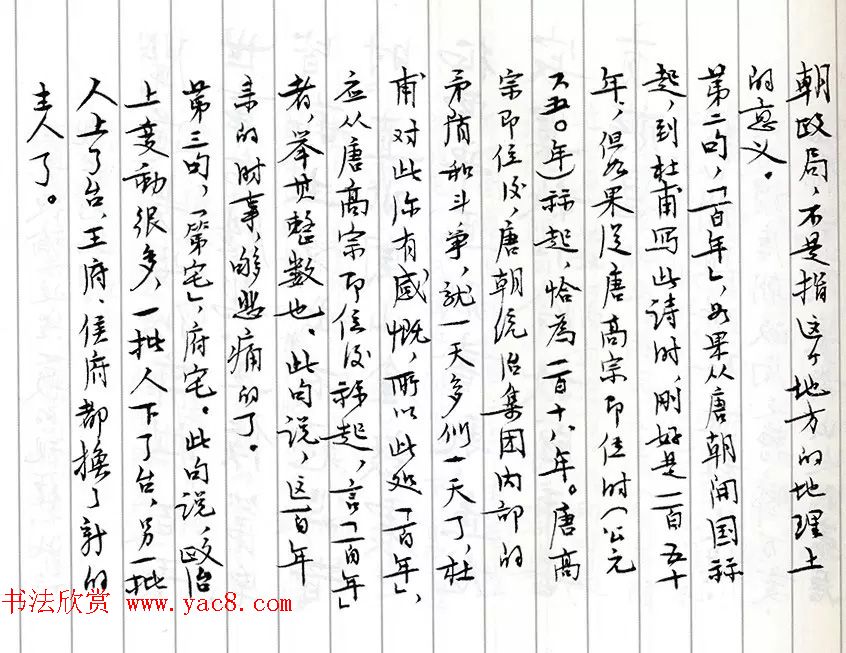 朝政局，不是指这个地方的地理上
的意义。
第二句，「百年」，如果从唐朝开国祘
起，到杜甫写此诗时，刚好是一百五十
年，但如果从唐高宗即位时（公元
六五〇年）祘起，恰为一百十八年。唐高
宗即位后，唐朝统治集团内部的
矛盾和斗争，就一天多似一天了，杜
甫对此深有感慨，所以此处「百年」，
应从唐高宗即位后祘起，言「百年」
者，举其整数也。此句说，这百年
来的时事，够悲痛的了。
第三句，「第宅」，府宅。此句说，政治
上变动很多，一批人下了台，另一批
人上了台，王府、侯府都换了新的
主人了。
书法欣赏 www.yac8.com